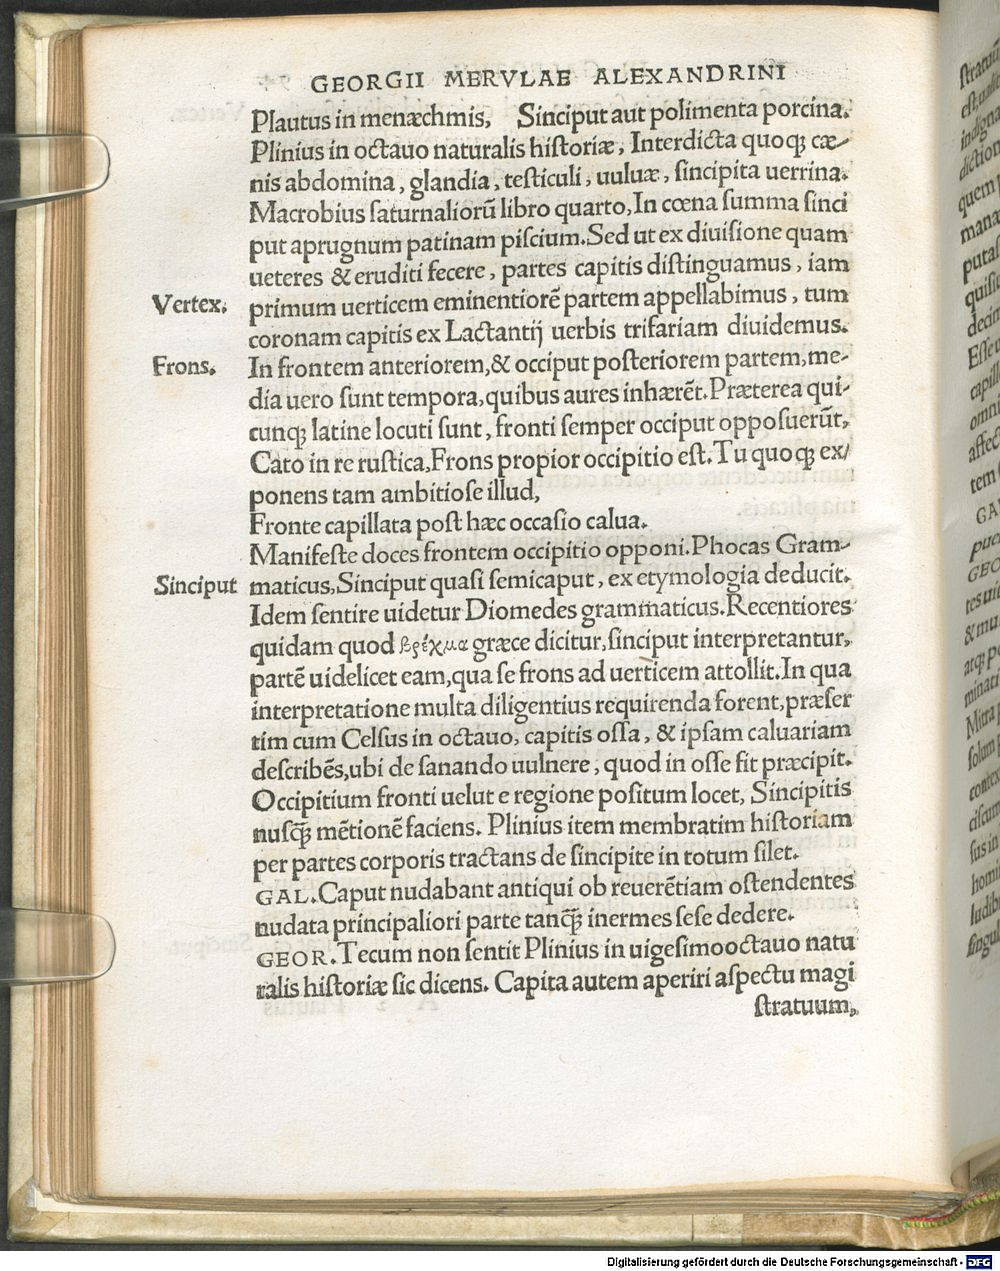 GEORGII MERVLAE ALEXANDRINI
Plautus in menæchmis, Sinciput aut polimenta porcina.
Plinius in octauo naturalis hiſtoriæ, Interdicta quoqꝫ cæ-
nis abdomina, glandia, teſticuli, uuluæ, ſincipita uerrina.
Macrobius ſaturnaliorū libro quarto, In cœna ſumma ſinci
put aprugnum patinam piſcium. Sed ut ex diuiſione quam
ueteres & eruditi fecere, partes capitis diſtinguamus, iam
Vertex. primum uerticem eminentiorē partem appellabimus, tum
coronam capitis ex Lactantij uerbis trifariam diuidemus.
Frons. In frontem anteriorem, & occiput poſteriorem partem, me-
dia uero ſunt tempora, quibus aures inhærēt. Præterea qui-
cunqꝫ latine locuti ſunt, fronti ſemper occiput oppoſuerūt,
Cato in re ruſtica, Frons propior occipitio eſt. Tu quoqꝫ ex/
ponens tam ambitioſe illud,
Fronte capillata poſt hæc occaſio calua.
Manifeſte doces frontem occipitio opponi. Phocas Gram-
Sinciput maticus, Sinciput quaſi ſemicaput, ex etymologia deducit.
Idem ſentire uidetur Diomedes grammaticus. Recentiores
quidam quod βρέχμα græce dicitur, ſinciput interpretantur,
partē uidelicet eam, qua ſe frons ad uerticem attollit. In qua
interpretatione multa diligentius requirenda forent, præſer
tim cum Celſus in octauo, capitis oſſa, & ipſam caluariam
deſcribēs, ubi de ſanando uulnere, quod in oſſe fit præcipit.
Occipitium fronti uelut e regione poſitum locet, Sincipitis
nuſqꝫ mētionē faciens. Plinius item membratim hiſtoriam
per partes corporis tractans de ſincipite in totum ſilet.
GAL. Caput nudabant antiqui ob reuerētiam oſtendentes
nudata principaliori parte tanqꝫ inermes ſeſe dedere.
GEOR. Tecum non ſentit Plinius in uigeſimooctauo natu
ralis hiſtoriæ ſic dicens. Capita autem aperiri aſpectu magi
ſtratuum,
Digitalisierung gefördert durch die Deutsche Forschungsgemeinschaft - DFG